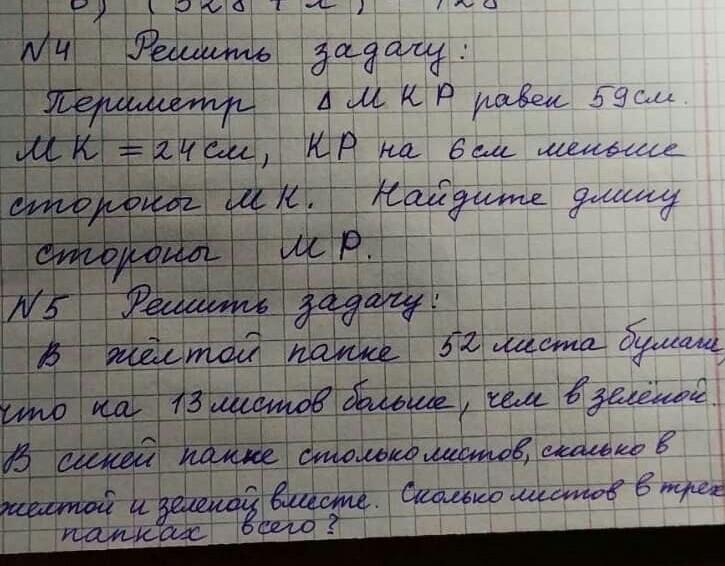 N4 Решить задачу:
Периметр Δ МКР равен 59см.
МК = 24см, КР на 6см меньше
стороны МК. Найдите длину
стороны МР.
N5 Решить задачу:
В жёлтой папке 52 листа бумаги,
что на 13 листов больше, чем в зелёной.
В синей папке столько листов, сколько в
желтой и зеленой вместе. Сколько листов в трех
папках всего?